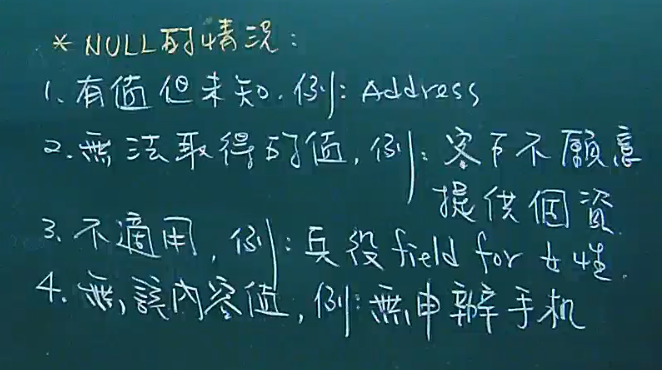 * NULL的情況:
1. 有值但未知. 例: Address
2. 無法取得的值, 例: 客戶不願意
提供個資
3. 不適用, 例: 兵役 field for 女性.
4. 無該內容值, 例: 無申辦手机